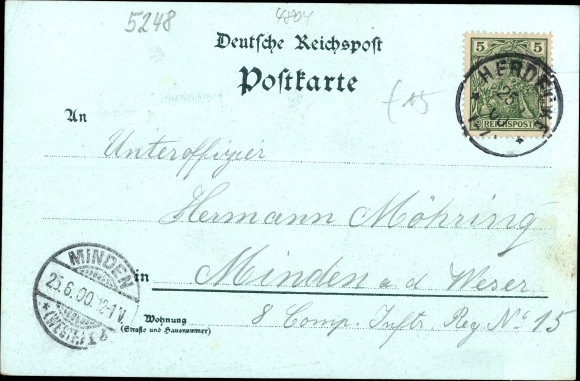 5248
4404
Deutsche Reichspost
Postkarte
5 5
REICHSPOST
HERDECKE
An
Unteroffizier
Hermann Möhring
in Minden a. d. Weser
MINDEN
25.6.00. 12-1 V.
* (WESTF.) 1 *
Wohnung
(Straße und Hausnummer)
8 Comp. Inftr. Reg. No 15